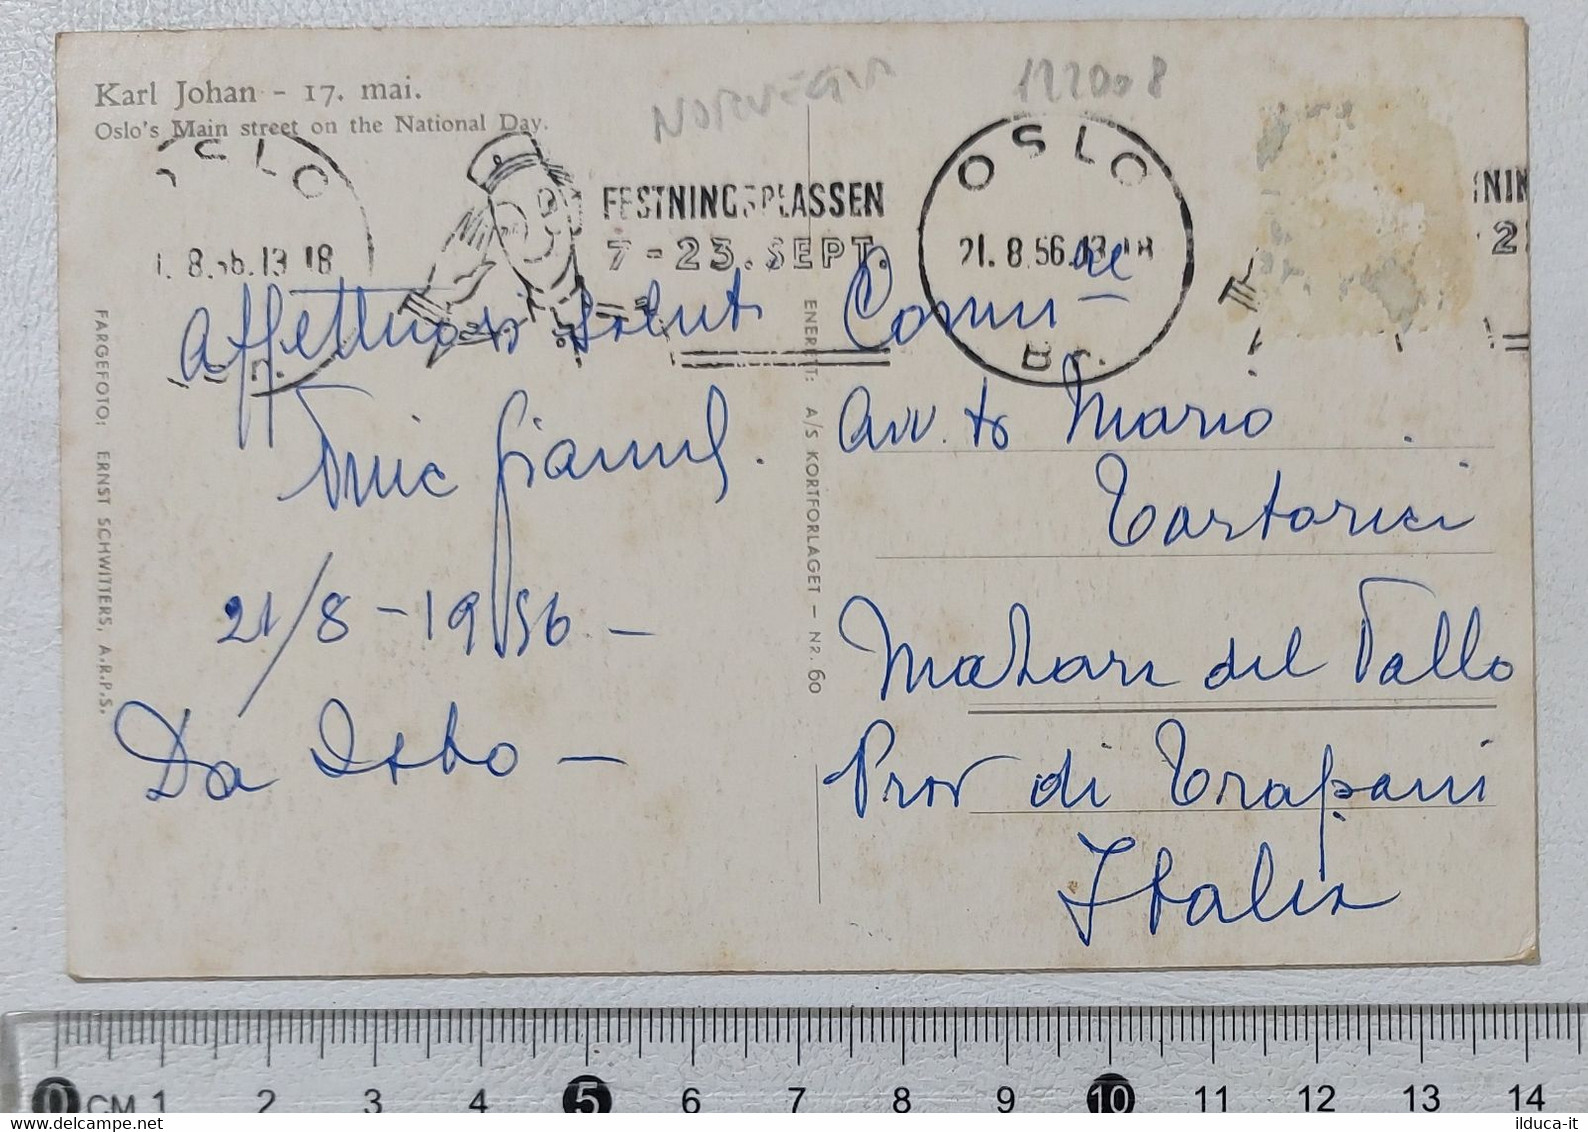 Karl Johan - 17. mai.
Oslo's Main street on the National Day.
NORVEGIA
122008
OSLO
FESTNINGSPLASSEN
7-23. SEPT.
8.56.13 18
OSLO
21.8.56.13 18
Br.
NIN
2
Affettuosi saluti
21/8-1956.-
Da Oslo -
FARGEFOTO: ERNST SCHWITTERS, A.R.P.S.
ENERETT: A/S KORTFORLAGET - NR. 60
Avv. to Mario
Tortorici
Mazara del Vallo
Prov di Trapani
Italia
0 CM 1 2 3 4 5 6 7 8 9 10 11 12 13 14
ilduca-it